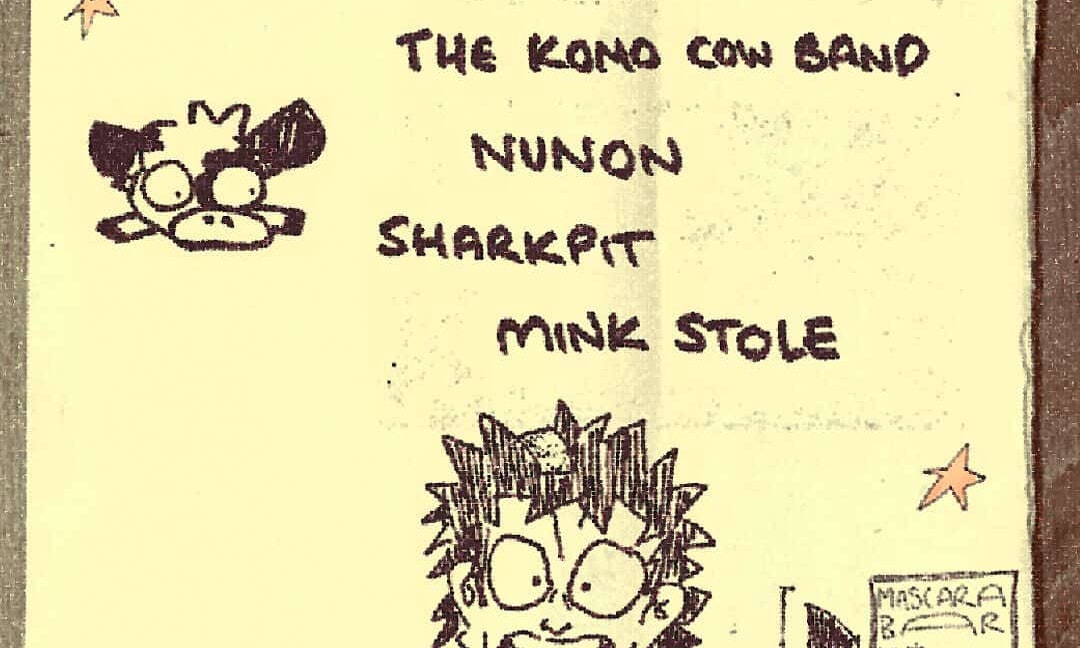 THE KOMO COW BAND
NUNON
SHARKPIT
MINK STOLE
MASCARA
BAR